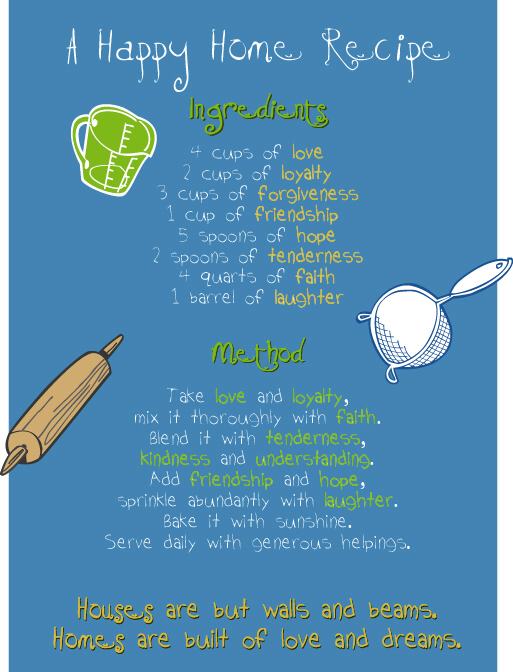 A Happy Home Recipe
Ingredients
4 cups of love
2 cups of loyalty
3 cups of forgiveness
1 cup of friendship
5 spoons of hope
2 spoons of tenderness
4 quarts of faith
1 barrel of laughter
Method
Take love and loyalty,
mix it thoroughly with faith.
Blend it with tenderness,
kindness and understanding.
Add friendship and hope,
sprinkle abundantly with laughter.
Bake it with sunshine.
Serve daily with generous helpings.
Houses are but walls and beams.
Homes are built of love and dreams.